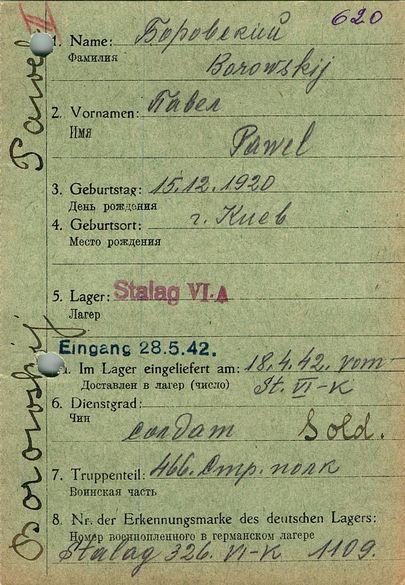 II
620
1. Name: Боровский
Фамилия
Borowskij
2. Vornamen: Павел
Имя
Pawel
3. Geburtstag: 15.12.1920
День рождения
4. Geburtsort: г. Киев
Место рождения
5. Lager: Stalag VI-A
Лагерь
Eingang 28.5.42.
Im Lager eingeliefert am: 18.4.42. vom
Доставлен в лагерь (число) St. VI-K
6. Dienstgrad:
Чин
солдат Sold.
7. Truppenteil: 466. Стр. полк
Воинская часть
8. Nr. der Erkennungsmarke des deutschen Lagers:
Номер военнопленного в германском лагере
Stalag 326. VI-K 1109.
Borowskij Pawel